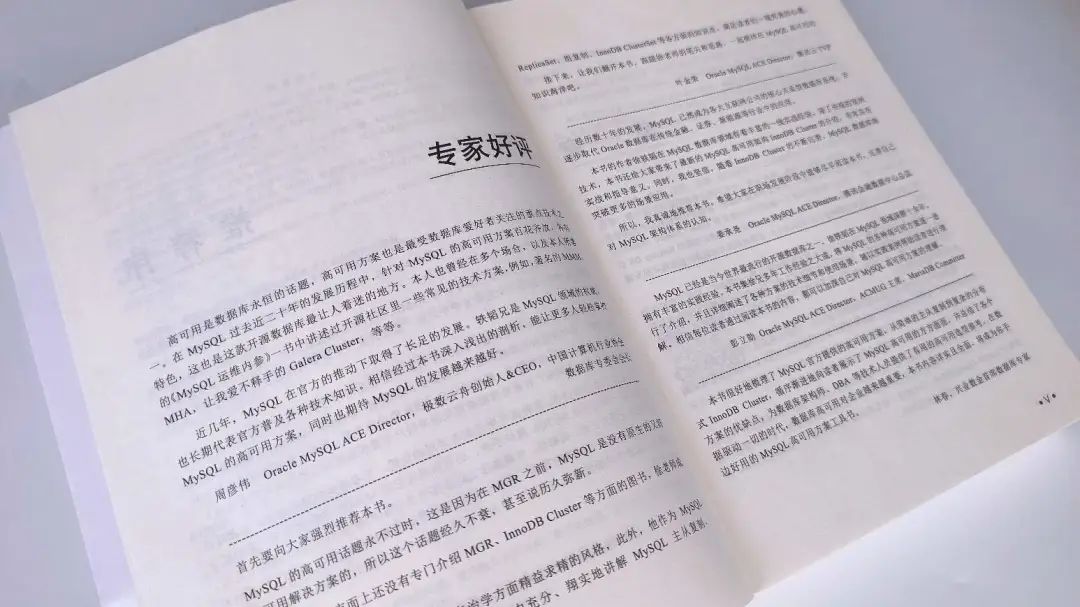 专家好评
高可用是数据库永恒的话题，高可用方案也是最受数据库爱好者关注的重点技术之
一。在 MySQL 过去近二十年的发展历程中，针对 MySQL 的高可用方案百花齐放，各具
特色，这也是这款开源数据库最让人着迷的地方。本人也曾经在多个场合，以及本人所著
的《MySQL 运维内参》一书中讲述过开源社区里一些常见的技术方案，例如，著名的 MMM、
MHA，让我爱不释手的 Galera Cluster，等等。
近几年，MySQL 在官方的推动下取得了长足的发展。铁韬兄是 MySQL 领域的权威，
也长期代表官方普及各种技术知识。相信经过本书深入浅出的剖析，能让更多人轻松掌握
MySQL 的高可用方案，同时也期待 MySQL 的发展越来越好。
周彦伟 Oracle MySQL ACE Director，极数云舟创始人&CEO，中国计算机行业协会
数据库专委会会长
首先要向大家强烈推荐本书。
MySQL 的高可用话题永不过时，这是因为在 MGR 之前，MySQL 是没有原生的
可用解决方案的，所以这个话题经久不衰，甚至说历久弥新。
面上还没有专门介绍 MGR、InnoDB Cluster 等方面的图书，徐老师
治学方面精益求精的风格，此外，他作为 MySQL
充分、翔实地讲解 MySQL 主从复制、
ReplicaSet、组复制、InnoDB ClusterSet 等各方面的知识点，满足读者们一窥究竟的心愿。
接下来，让我们翻开本书，跟随徐老师的笔尖和思路，一起徜徉在 MySQL 高可用的
知识海洋吧。
叶金荣 Oracle MySQL ACE Director，
经历数十年的发展，MySQL 已然成为各大互联网公司的核心关系型数据库系统，并
逐步取代 Oracle 数据库在传统金融、证券、新能源等行业中的应用。
本书的作者徐铁韬在 MySQL 数据库领域有着丰富的一线实战经验，除了传统的复制
技术，本书还给大家带来了最新的 MySQL 高可用架构 InnoDB Cluster 的介绍，非常具有
实战和指导意义。同时，我也坚信，随着 InnoDB Cluster 的不断完善，MySQL 数据库能
突破更多的场景应用。
所以，我真诚地推荐本书，希望大家在职场发展阶段中能够尽早阅读本书，完善自己
对 MySQL 架构体系的认知。
姜承尧 Oracle MySQL ACE Director，腾讯金融数据中心总监
MySQL 已经是当今世界最流行的开源数据库之一，徐铁韬在 MySQL 领域深耕十余年，
拥有丰富的实践经验。本书集徐兄多年工作经验之大成，将 MySQL 的各种高可用方案逐一进
行了介绍，并且详细阐述了各种方案的技术细节和使用场景，辅以实际案例帮助读者进行理
解。相信每位读者通过阅读本书的内容，都可以加深自己对 MySQL 高可用方案的理解。
彭立勋 Oracle MySQL ACE Director，ACMUG 主席，MariaDB Committer
本书很好地梳理了 MySQL 官方提供的高可用方案，从简单的主从复制到复杂的分布
式 InnoDB Cluster，循序渐进地向读者展示了 MySQL 高可用的方方面面，并总结了各个
方案的优缺点，为数据库架构师、DBA 等技术人员提供了有用的高可用选型参考。在数
据驱动一切的时代，数据库高可用对企业越来越重要，本书内容详实且全面，将成为你手
边好用的 MySQL 高可用方案工具书。
林春，兴业数金首席数据库专家
•V•